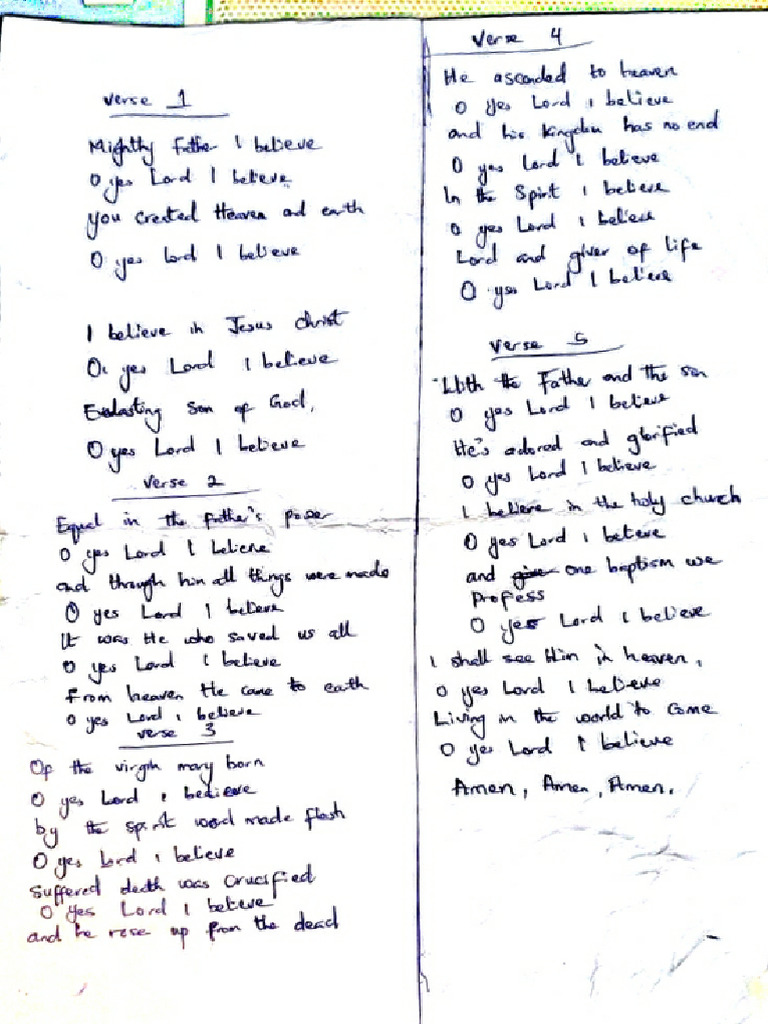 Verse 1
Mighty Father I believe
O yes Lord I believe
you created Heaven and earth
O yes lord I believe
I believe in Jesus christ
O yes Lord I believe
Everlasting Son of God,
O yes Lord I believe
Verse 2
Equal in the father's power
O yes Lord I believe
and through him all things were made
O yes Lord I believe
It was He who saved us all
O yes Lord I believe
from heaven He came to earth
O yes Lord I believe
Verse 3
Of the virgin mary born
O yes Lord I believe
by the spirit word made flesh
O yes Lord I believe
suffered death was crucified
O yes Lord I believe
and he rose up from the dead
Verse 4
He ascended to heaven
O yes Lord I believe
and his kingdom has no end
O yes Lord I believe
In the Spirit I believe
O yes Lord I believe
Lord and giver of life
O yes Lord I believe
Verse 5
With the Father and the son
O yes Lord I believe
He's adored and glorified
O yes Lord I believe
I believe in the holy church
O yes Lord I believe
and one baptism we
Profess
O yes Lord I believe
I shall see Him in heaven,
O yes Lord I believe
Living in the world to come
O yes Lord I believe
Amen, Amen, Amen.